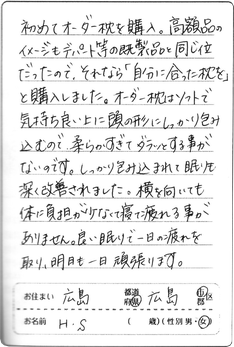 初めてオーダー枕を購入。高額品の
イメージもデパート等の既製品と同じ位
だったので、それなら「自分に合った枕を」
と購入しました。オーダー枕はソフトで
気持ち良い上に頭の形にしっかり包み
込むので、柔らかすぎてダラッとする事が
ないのです。しっかり包み込まれて眠りも
深く改善されました。横を向いても
体に負担が少なくて寝て疲れる事が
ありません。良い眠りで一日の疲れを
取り、明日も一日頑張ります。
お住まい 広島 都道府県 広島 市区郡
お名前 H.S ( 歳)(性別 男・女)